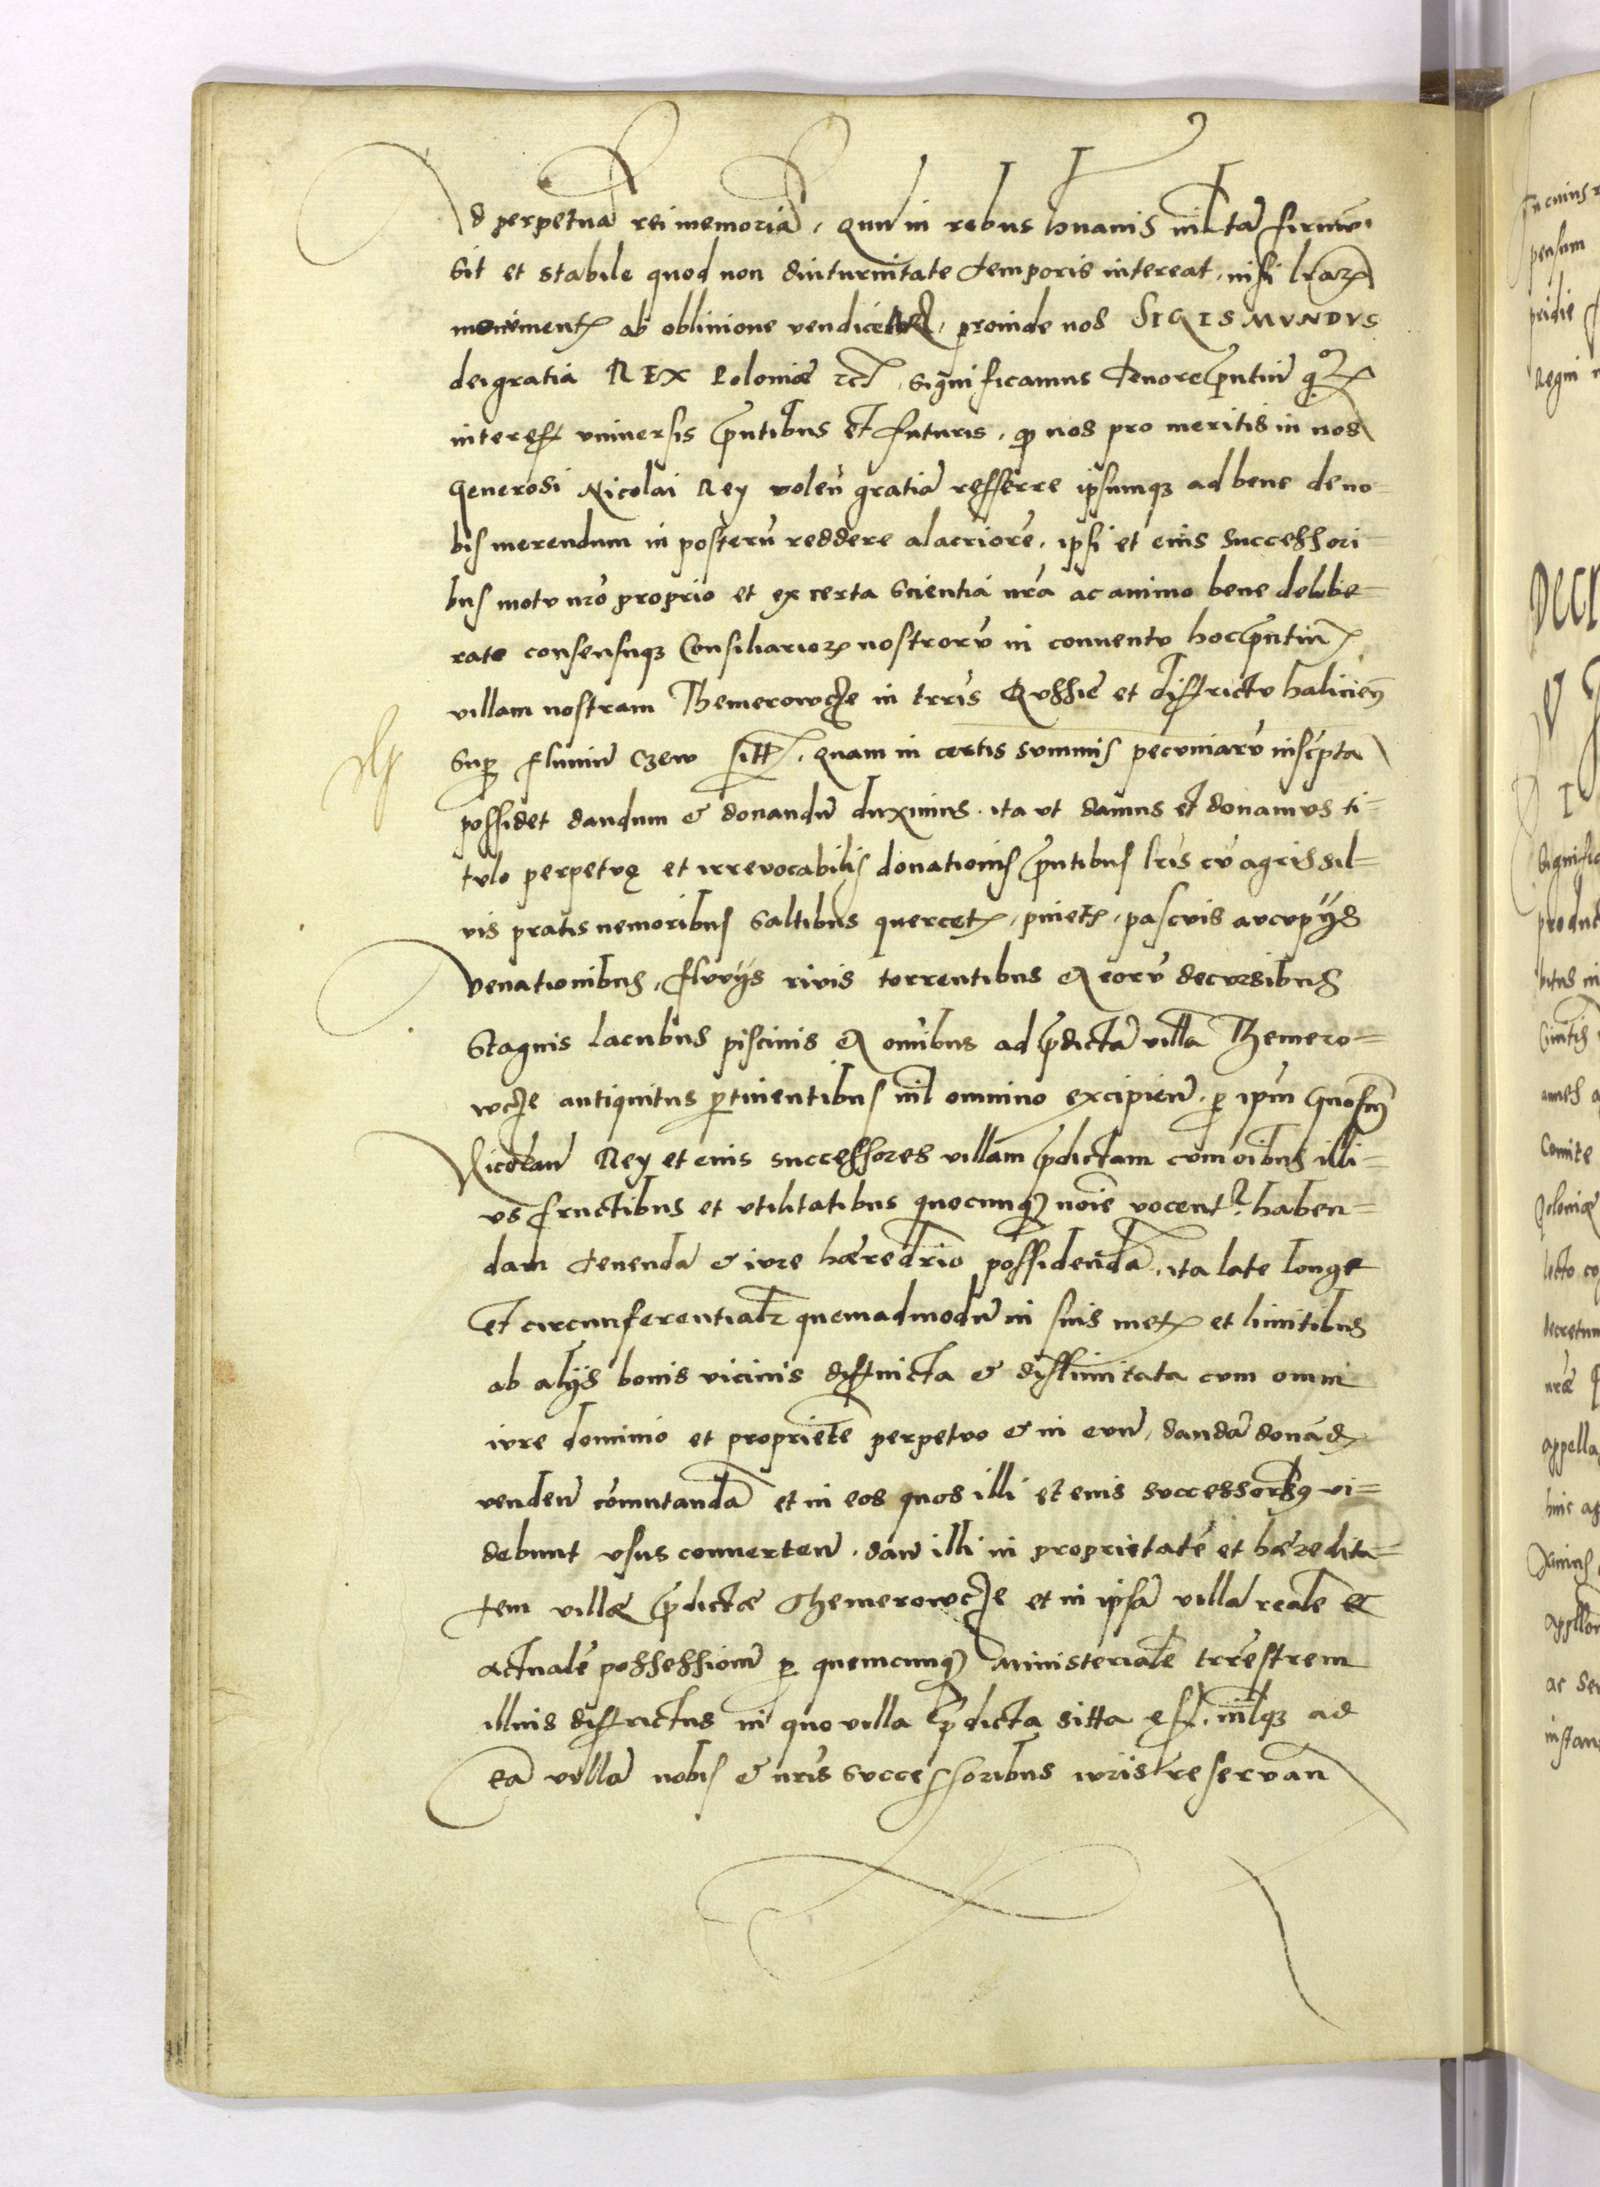 Ad perpetuā rei memoriā, Quū in rebus huanis nil tā firmū
sit et stabile quod non diuturnitate temporis intereat, nisi lraꝝ
monimentꝭ ab obliuione vendicetur, proinde nos SIGISMVNDVS
dei gratia REX Poloniæ ꝛc̄. significamus tenore p̄ntiū q̊ꝝ
interest vniuersis p̄ntibus et futuris, ꝙ nos pro meritis in nos
Generosi Nicolai Rey volen̄ gratiā refferre ipsumqꝫ ad bene de no-
bis merendum in posterū reddere alacriorē, ipsi et eius successori-
bus motu nr̄o proprio et ex certa scientia nr̄a ac animo bene delibe-
rato consensuqꝫ Consiliarioꝝ nostrorū in conuentu hoc p̄ntiū
villam nostram Themerowcze in trr̄is Russiē et districtu halicien̄
sup̱ flumin̄ Czew sittꝭ. quam in certis summis pecuniarū inscp̄ta
possidet dandum & donandū duximus. ita vt damus et donamus ti-
tulo perpetuę et irreuocabilis donationis p̄ntibus lr̄is cū agris sil-
vis pratis nemoribus saltibus quercetꝭ, pinetꝭ, pascuis aucupijs
venationibus, fluvijs riuis torrentibus & eorū decursibus
stagnis lacubus piscinis & omībus ad p̄dictā villā Themero-
wcze antiquitus p̱tinentibus nil omnino excipien̄. p̱ ipm̄ Gnosm̄
Nicolaū Rey et eius successores villam p̄dictam cum oībus illi-
us fructibus et vtilitatibus quocunqꝫ noīe vocentʳ haben-
dam tenendā & iure hæredrio possidendā, ita late longe
et circumferentialr quemadmodū in suis metꝭ et limitibus
ab alijs bonis vicinis distincta & dislimitata cum omni
iure dominio et proprietē perpetuo & in evū, dandā donādꝭ
venden̄ cōmutandā et in eos quos illi et eius successoribꝫ vi-
debunt vsus conuerten̄. dan̄ illi in proprietatē et hæredita-
tem villæ p̄dictæ Themerowcze et in ipsā villā realē &
actualē possessionē p̱ quemcunqꝫ ministerialē trr̄estrem
illius districtus in quo villa p̄dicta sitta est, nilqꝫ ad
eā villā nobis & nr̄is successoribus iuris reseruan̄